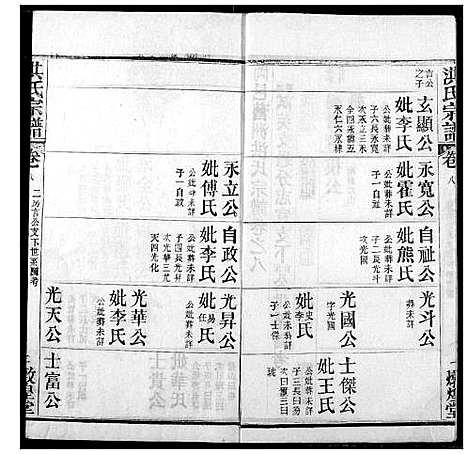 洪氏宗譜
卷八
言公之子
玄顯公
妣李氏
公妣葬未詳
子六長永寬
次永立三永
仝四永
天仁六永
永寬公
妣霍氏
公妣葬未詳
子一自祉
自祉公
妣熊氏
公妣葬未詳
子二長光斗
次光國
光斗公
葬未詳
光國公
字光國
妣史氏
公妣葬未詳
子一士傑
士傑公
妣王氏
公妣葬未詳
子三長曰
次曰三曰
永立公
妣傅氏
公妣葬未詳
子一自政
自政公
妣李氏
公妣葬未詳
子四長光昇
次光華三光
天四光化
光昇公
妣易氏
任氏
公妣葬未詳
光華公
妣李氏
公妣葬未詳
光天公
士富公
洪氏宗譜
卷八
二房言公支下世系圖考
敦煌堂